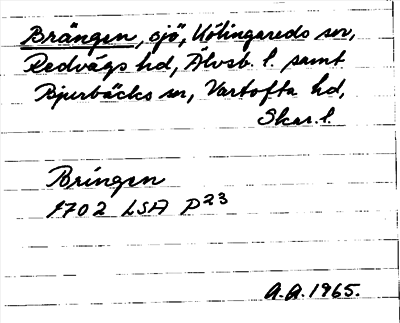 Brängen, sjö, Kölingareds sn,
Redvägs hd, Älvsb. l. samt
Bjurbäcks sn, Vartofta hd,
Skar. l.
Bringen
1702 LSA P23
A.A. 1965.